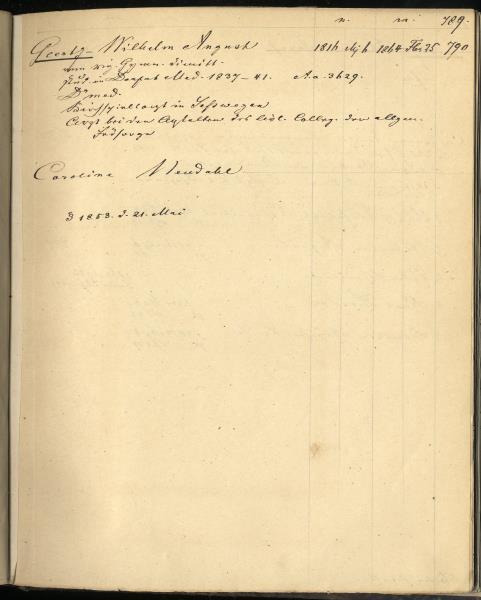 n. m. 789.
Goertz Wilhelm August 1864 790
vom rig. Gymn. dimitt.
stud. in Dorpat Med. 1837-41. A.a. 3629.
Dr med.
Kirchspielsarzt in Seßwegen
Arzt bei den Anstalten des livl. Colleg. der allgem.
Fürsorge
Carolina
d 1853. d. 21. Mai